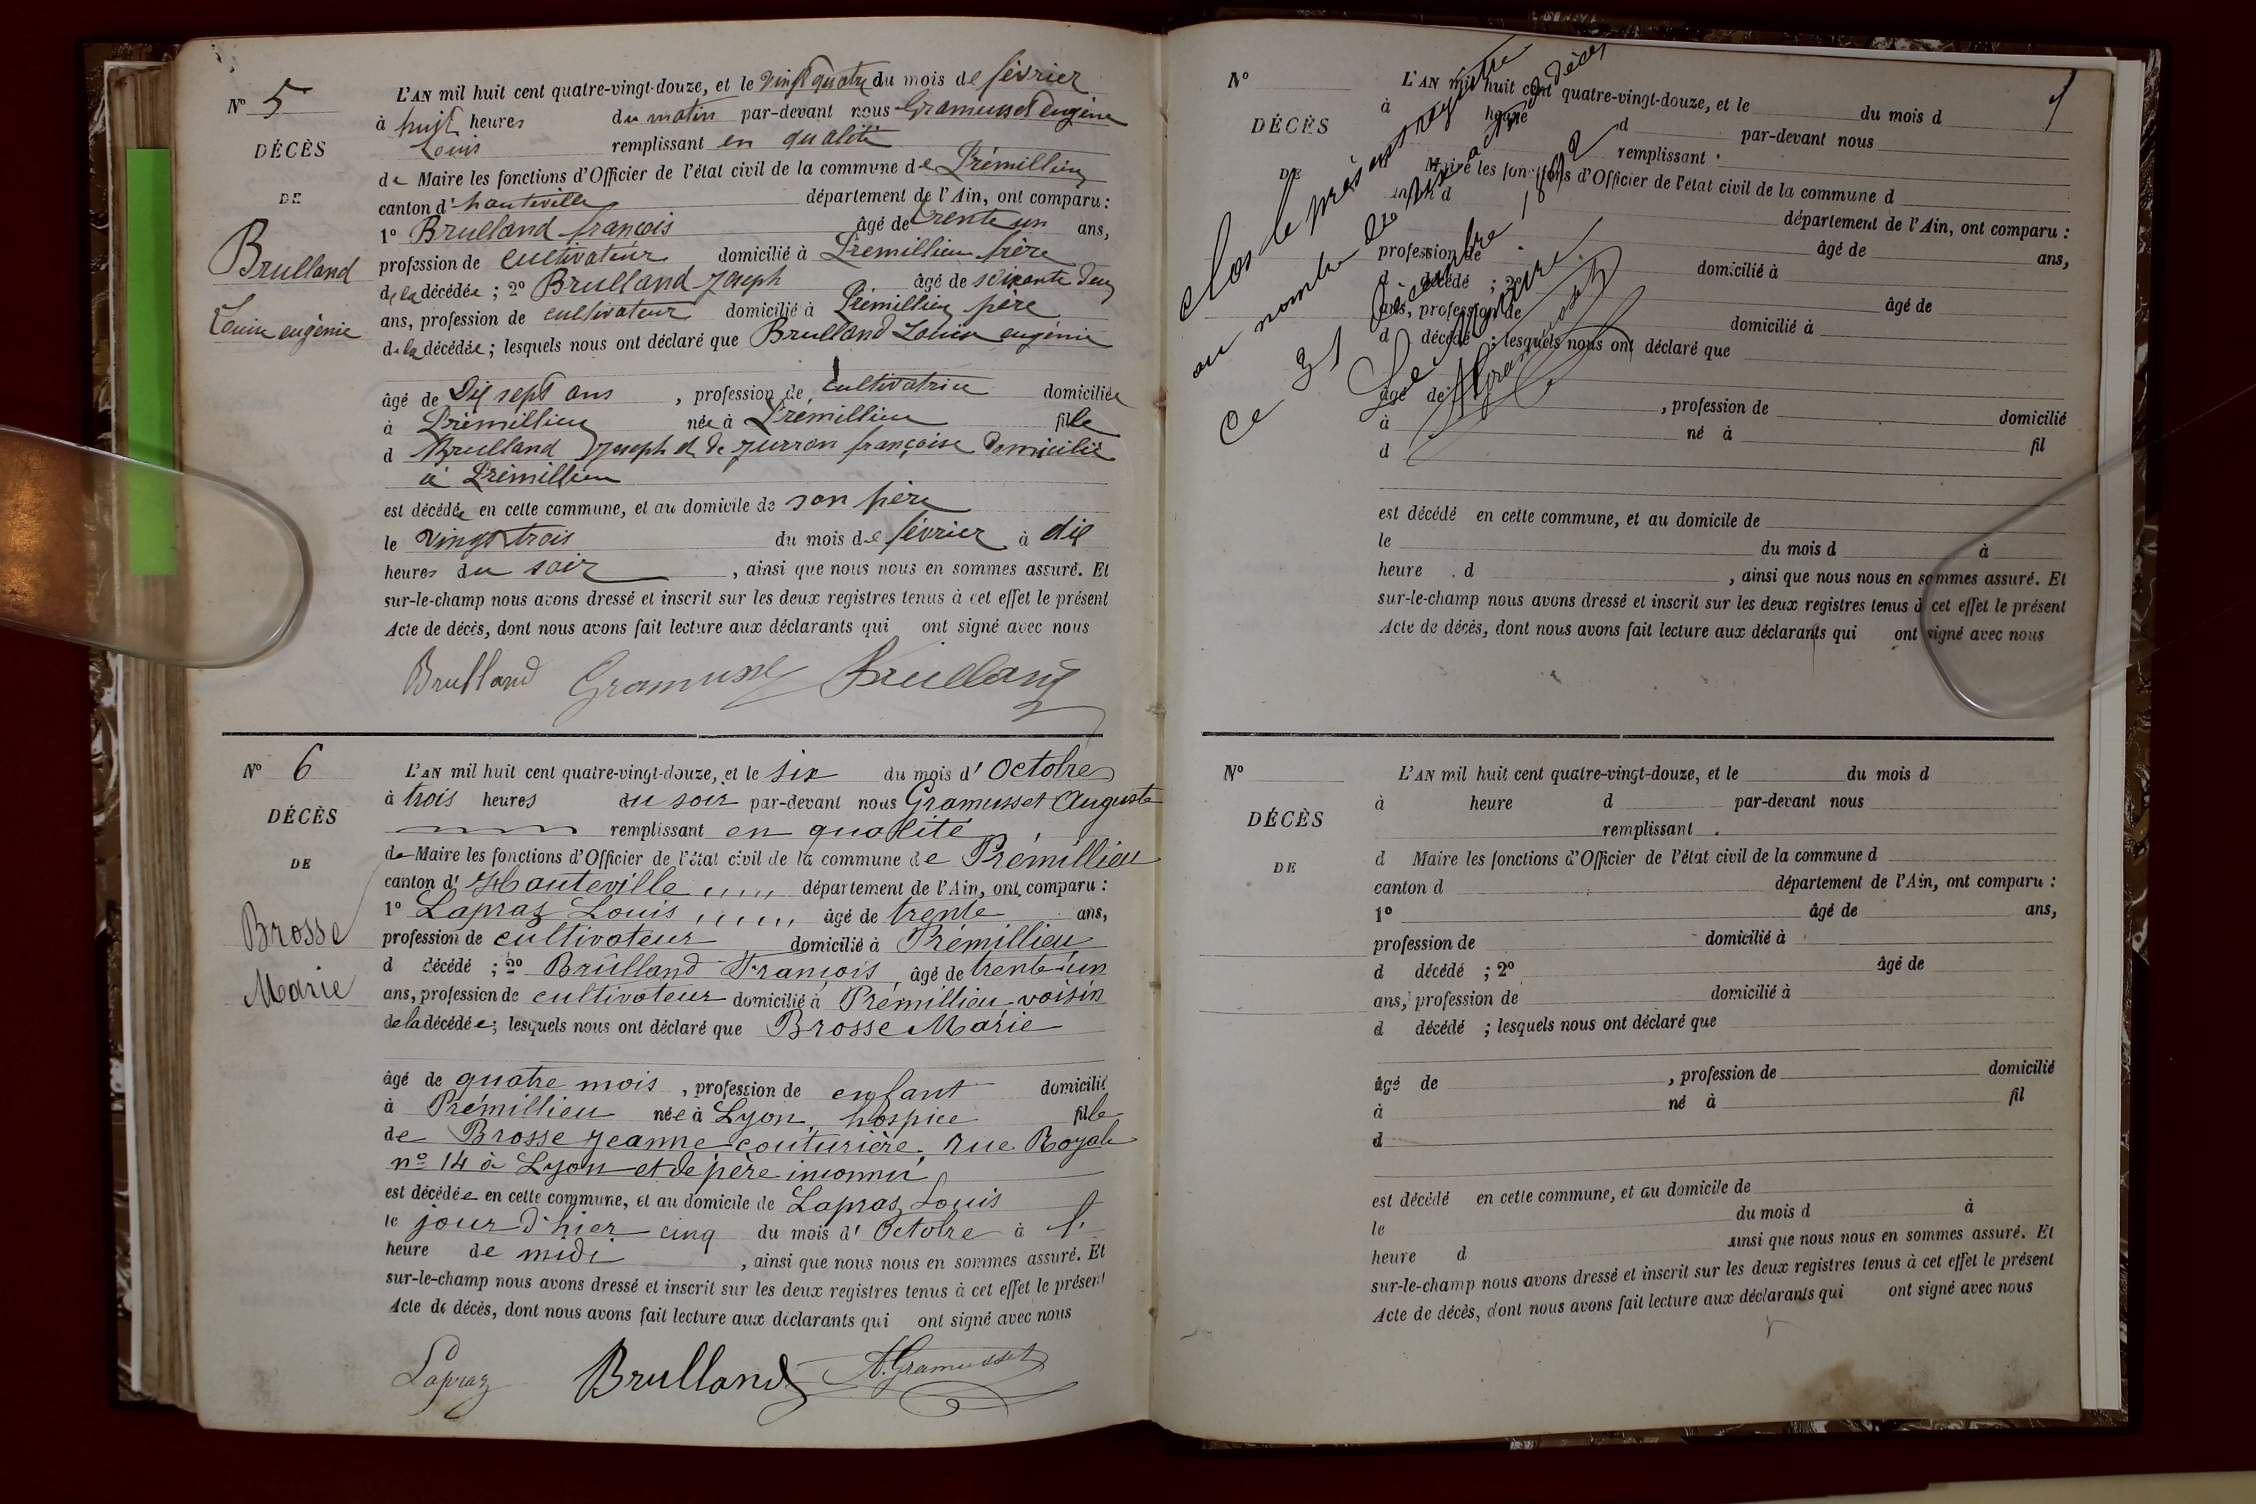 N° 5
DÉCÈS
DE
Brulland
Louise eugénie
L'AN mil huit cent quatre-vingt-douze, et le vingt quatre du mois de février
à huit heures du matin par-devant nous Gramusset eugène
Louis remplissant en qualité
de Maire les fonctions d'Officier de l'état civil de la commune de Prémillieu
canton d' hauteville département de l'Ain, ont comparu :
1° Brulland françois âgé de trente un ans,
profession de cultivateur domicilié à Prémillieu frère
de la décédée ; 2° Brulland Joseph âgé de soixante deux
ans, profession de cultivateur domicilié à Prémillieu père
de la décédée ; lesquels nous ont déclaré que Brulland Louise eugénie
âgé de Dix sept ans , profession de cultivatrice domiciliée
à Prémillieu née à Prémillieu fille
d Brulland Joseph et de Jurron françoise Domicilié
à Prémillieu
est décédée en cette commune, et au domicile de son père
le vingt trois du mois de février à dix
heures du soir , ainsi que nous nous en sommes assuré. Et
sur-le-champ nous avons dressé et inscrit sur les deux registres tenus à cet effet le présent
Acte de décès, dont nous avons fait lecture aux déclarants qui ont signé avec nous
Brulland Gramusset Brulland
N° 6
DÉCÈS
DE
Brosse
Marie
L'AN mil huit cent quatre-vingt-douze, et le six du mois d' Octobre
à trois heures du soir par-devant nous Gramusset Auguste
remplissant en qualité
de Maire les fonctions d'Officier de l'état civil de la commune de Prémillieu
canton d' Hauteville département de l'Ain, ont comparu :
1° Lapraz Louis âgé de trente ans,
profession de cultivateur domicilié à Prémillieu
d décédé ; 2° Brülland François, âgé de trente-un
ans, profession de cultivateur domicilié à Prémillieu voisin
de la décédée ; lesquels nous ont déclaré que Brosse Marie
âgé de quatre mois , profession de enfant domicilié
à Prémillieu née à Lyon, hospice fille
de Brosse Jeanne, couturière, rue Royale
n° 14 à Lyon et de père inconnu
est décédée en cette commune, et au domicile de Lapraz Louis
le jour d'hier cinq du mois d' Octobre à l'
heure de midi , ainsi que nous nous en sommes assuré. Et
sur-le-champ nous avons dressé et inscrit sur les deux registres tenus à cet effet le présent
Acte de décès, dont nous avons fait lecture aux déclarants qui ont signé avec nous
Lapraz Brulland A. Gramusset
clos le présent registre
au nombre de six actes de décès
Ce 31 Décembre 1892
Le Maire
A Gramusset
N°
DÉCÈS
DE
L'AN mil huit cent quatre-vingt-douze, et le du mois d
à heure d par-devant nous
remplissant
Maire les fonctions d'Officier de l'état civil de la commune d
canton d département de l'Ain, ont comparu :
âgé de ans,
profession de domicilié à
d décédé ; 2° âgé de
ans, profession de domicilié à
d décédé ; lesquels nous ont déclaré que
âgé de , profession de domicilié
à né à fil
d
est décédé en cette commune, et au domicile de
le du mois d à
heure d , ainsi que nous nous en sommes assuré. Et
sur-le-champ nous avons dressé et inscrit sur les deux registres tenus à cet effet le présent
Acte de décès, dont nous avons fait lecture aux déclarants qui ont signé avec nous
N°
DÉCÈS
DE
L'AN mil huit cent quatre-vingt-douze, et le du mois d
à heure d par-devant nous
remplissant
d Maire les fonctions d'Officier de l'état civil de la commune d
canton d département de l'Ain, ont comparu :
1° âgé de ans,
profession de domicilié à
d décédé ; 2° âgé de
ans, profession de domicilié à
d décédé ; lesquels nous ont déclaré que
âgé de , profession de domicilié
à né à fil
d
est décédé en cette commune, et au domicile de
le du mois d à
heure d ainsi que nous nous en sommes assuré. Et
sur-le-champ nous avons dressé et inscrit sur les deux registres tenus à cet effet le présent
Acte de décès, dont nous avons fait lecture aux déclarants qui ont signé avec nous